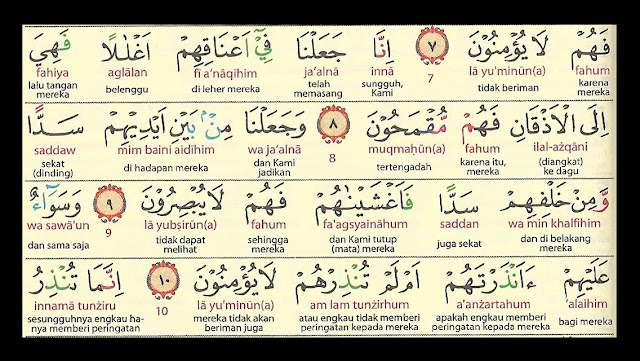 فَهُمْ لَا يُؤْمِنُوْنَ ٧ اِنَّا جَعَلْنَا فِيْٓ اَعْنَاقِهِمْ اَغْلٰلًا فَهِيَ
fahum lā yu'minūn(a) 7 innā ja'alnā fī a'nāqihim aglālan fahiya
karena mereka tidak beriman sungguh, Kami telah memasang di leher mereka belenggu lalu tangan mereka
اِلَى الْاَذْقَانِ فَهُمْ مُّقْمَحُوْنَ ٨ وَجَعَلْنَا مِنْۢ بَيْنِ اَيْدِيْهِمْ سَدًّا
ilal-ażqāni fahum muqmaḥūn(a) 8 wa ja'alnā mim baini aidīhim saddaw
(diangkat) ke dagu karena itu, mereka tertengadah dan Kami jadikan di hadapan mereka sekat (dinding)
وَّمِنْ خَلْفِهِمْ سَدًّا فَاَغْشَيْنٰهُمْ فَهُمْ لَا يُبْصِرُوْنَ ٩ وَسَوَاۤءٌ
wa min khalfihim saddan fa'agsyaināhum fahum lā yubṣirūn(a) 9 wa sawā'un
dan di belakang mereka juga sekat dan Kami tutup (mata) mereka sehingga mereka tidak dapat melihat dan sama saja
عَلَيْهِمْ ءَاَنْذَرْتَهُمْ اَمْ لَمْ تُنْذِرْهُمْ لَا يُؤْمِنُوْنَ ١٠ اِنَّمَا تُنْذِرُ
'alaihim a'anżartahum am lam tunżirhum lā yu'minūn(a) 10 innamā tunżiru
bagi mereka apakah engkau memberi peringatan kepada mereka atau engkau tidak memberi peringatan kepada mereka mereka tidak akan beriman juga sesungguhnya engkau hanya memberi peringatan